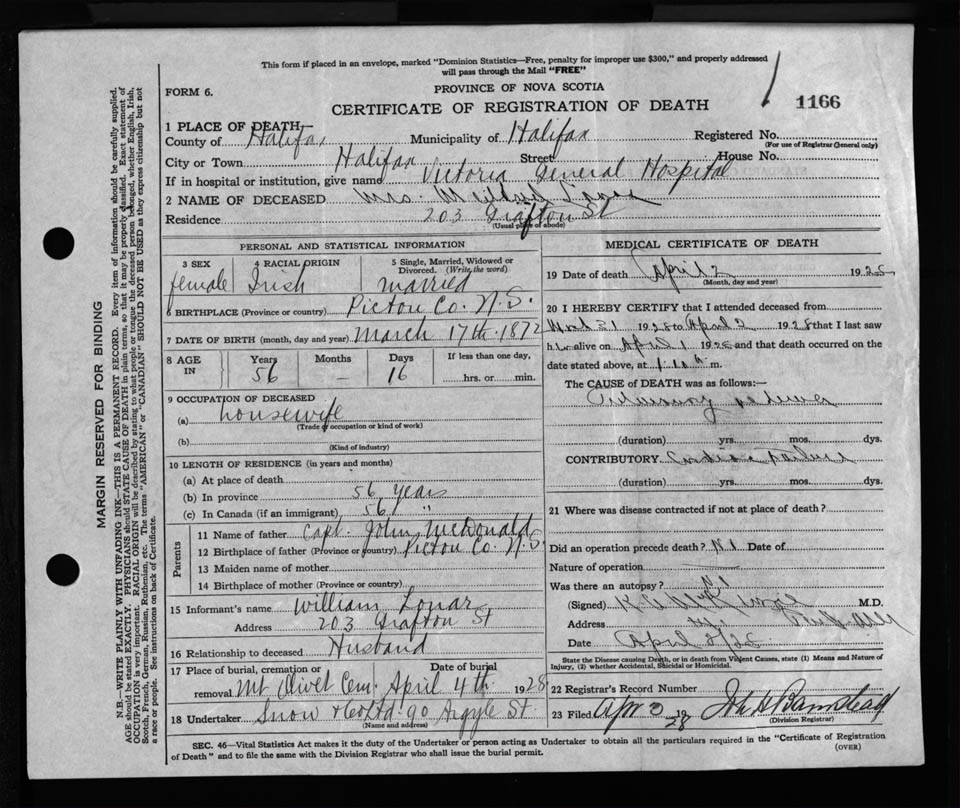 This form if placed in an envelope, marked "Dominion Statistics—Free, penalty for improper use $300," and properly addressed
will pass through the Mail "FREE"
FORM 6.
PROVINCE OF NOVA SCOTIA
CERTIFICATE OF REGISTRATION OF DEATH
1166
1 PLACE OF DEATH—
County of Halifax Municipality of Halifax Registered No.
(For use of Registrar General only)
City or Town Halifax Street House No.
If in hospital or institution, give name Victoria General Hospital
2 NAME OF DECEASED Mrs.
Residence 203 Grafton St
(Usual place of abode)
PERSONAL AND STATISTICAL INFORMATION
3 SEX 4 RACIAL ORIGIN 5 Single, Married, Widowed or
Divorced. (Write the word)
female Irish married
6 BIRTHPLACE (Province or country) Pictou Co. N.S.
7 DATE OF BIRTH (month, day and year) March 17th 1872
8 AGE IN Years Months Days If less than one day,
56 — 16 hrs. or min.
9 OCCUPATION OF DECEASED
(a) housewife
(Trade or occupation or kind of work)
(b)
(Kind of industry)
10 LENGTH OF RESIDENCE (in years and months)
(a) At place of death
(b) In province 56 years
(c) In Canada (if an immigrant) 56 "
Parents
11 Name of father Capt. John McDonald
12 Birthplace of father (Province or country) Pictou Co. N.S.
13 Maiden name of mother
14 Birthplace of mother (Province or country)
15 Informant's name William
Address 203 Grafton St
16 Relationship to deceased Husband
17 Place of burial, cremation or Date of burial
removal Mt Olivet Cem. April 4th 1928
18 Undertaker Snow & Co Ltd 90 Argyle St.
(Name and address)
MEDICAL CERTIFICATE OF DEATH
19 Date of death April 2 192
(Month, day and year)
20 I HEREBY CERTIFY that I attended deceased from
March 31 1928 to April 2 1928 that I last saw
h alive on April 1 1928 and that death occurred on the
date stated above, at m.
The CAUSE of DEATH was as follows:—
Pulmonary
(duration) yrs. mos. dys.
CONTRIBUTORY Cardiac failure
(duration) yrs. mos. dys.
21 Where was disease contracted if not at place of death?
Did an operation precede death? Date of
Nature of operation
Was there an autopsy?
(Signed) M.D.
Address
Date April
State the Disease causing Death, or in death from Violent Causes, state (1) Means and Nature of
Injury, (2) whether Accidental, Suicidal or Homicidal.
22 Registrar's Record Number
23 Filed Apr 3 1928
(Division Registrar)
SEC. 46—Vital Statistics Act makes it the duty of the Undertaker or person acting as Undertaker to obtain all the particulars required in the "Certificate of Registration
of Death" and to file the same with the Division Registrar who shall issue the burial permit.
(OVER)
MARGIN RESERVED FOR BINDING
N.B.—WRITE PLAINLY WITH UNFADING INK—THIS IS A PERMANENT RECORD. Every item of information should be carefully supplied.
AGE should be stated EXACTLY. PHYSICIANS should STATE CAUSE OF DEATH in plain terms, so that it may be properly classified. Exact statement of
OCCUPATION is very important. RACIAL ORIGIN will be described by stating to what people or tongue the deceased person belonged, whether English, Irish,
Scotch, French, German, Russian, Ruthenian, etc. The terms "AMERICAN" or "CANADIAN" SHOULD NOT BE USED as they express citizenship but not
a race or people. See instructions on back of Certificate.